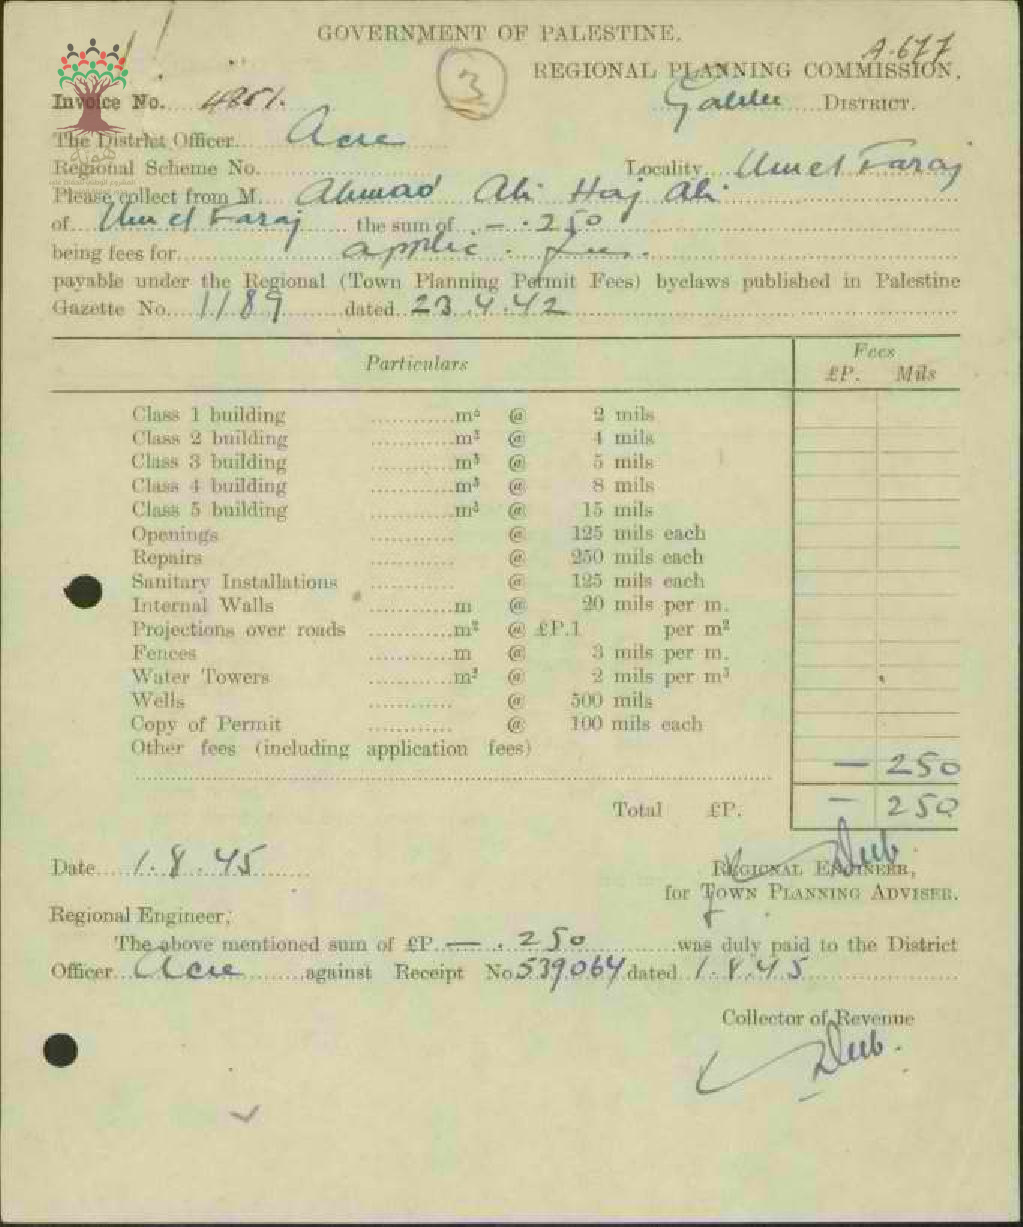 GOVERNMENT OF PALESTINE.
A.677
3
REGIONAL PLANNING COMMISSION,
Invoice No. 4851.
Galilee DISTRICT.
The District Officer Acre
Regional Scheme No. Locality Um el Faraj
Please collect from M. Ahmad Ali Haj Ali
of Um el Faraj the sum of — . 250
being fees for applic. fees.
payable under the Regional (Town Planning Permit Fees) byelaws published in Palestine
Gazette No. 1189 dated 23.4.42
Particulars Fees
£P. Mils
Class 1 building m³ @ 2 mils
Class 2 building m³ @ 4 mils
Class 3 building m³ @ 5 mils
Class 4 building m³ @ 8 mils
Class 5 building m³ @ 15 mils
Openings @ 125 mils each
Repairs @ 250 mils each
Sanitary Installations @ 125 mils each
Internal Walls m @ 20 mils per m.
Projections over roads m² @ £P.1 per m²
Fences m @ 3 mils per m.
Water Towers m³ @ 2 mils per m³
Wells @ 500 mils
Copy of Permit @ 100 mils each
Other fees (including application fees)
— 250
Total £P. — 250
Date 1.8.45
REGIONAL ENGINEER,
for TOWN PLANNING ADVISER.
Regional Engineer,
The above mentioned sum of £P. — . 250 was duly paid to the District
Officer Acre against Receipt No 539064 dated 1.8.45
Collector of Revenue